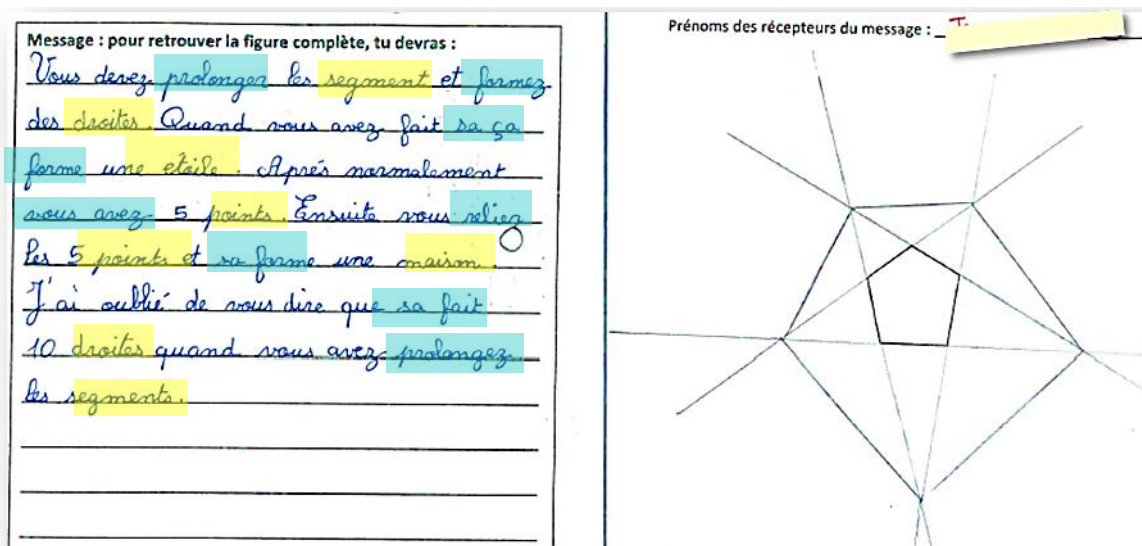 Message : pour retrouver la figure complète, tu devras :
Vous devez prolonger les segment et formez
des droites. Quand vous avez fait sa ça
forme une étoile. Aprés normalement
vous avez 5 points. Ensuite vous reliez
les 5 points et sa forme une maison.
J'ai oublié de vous dire que sa fait
10 droites quand vous avez prolongez
les segments.
Prénoms des récepteurs du message :